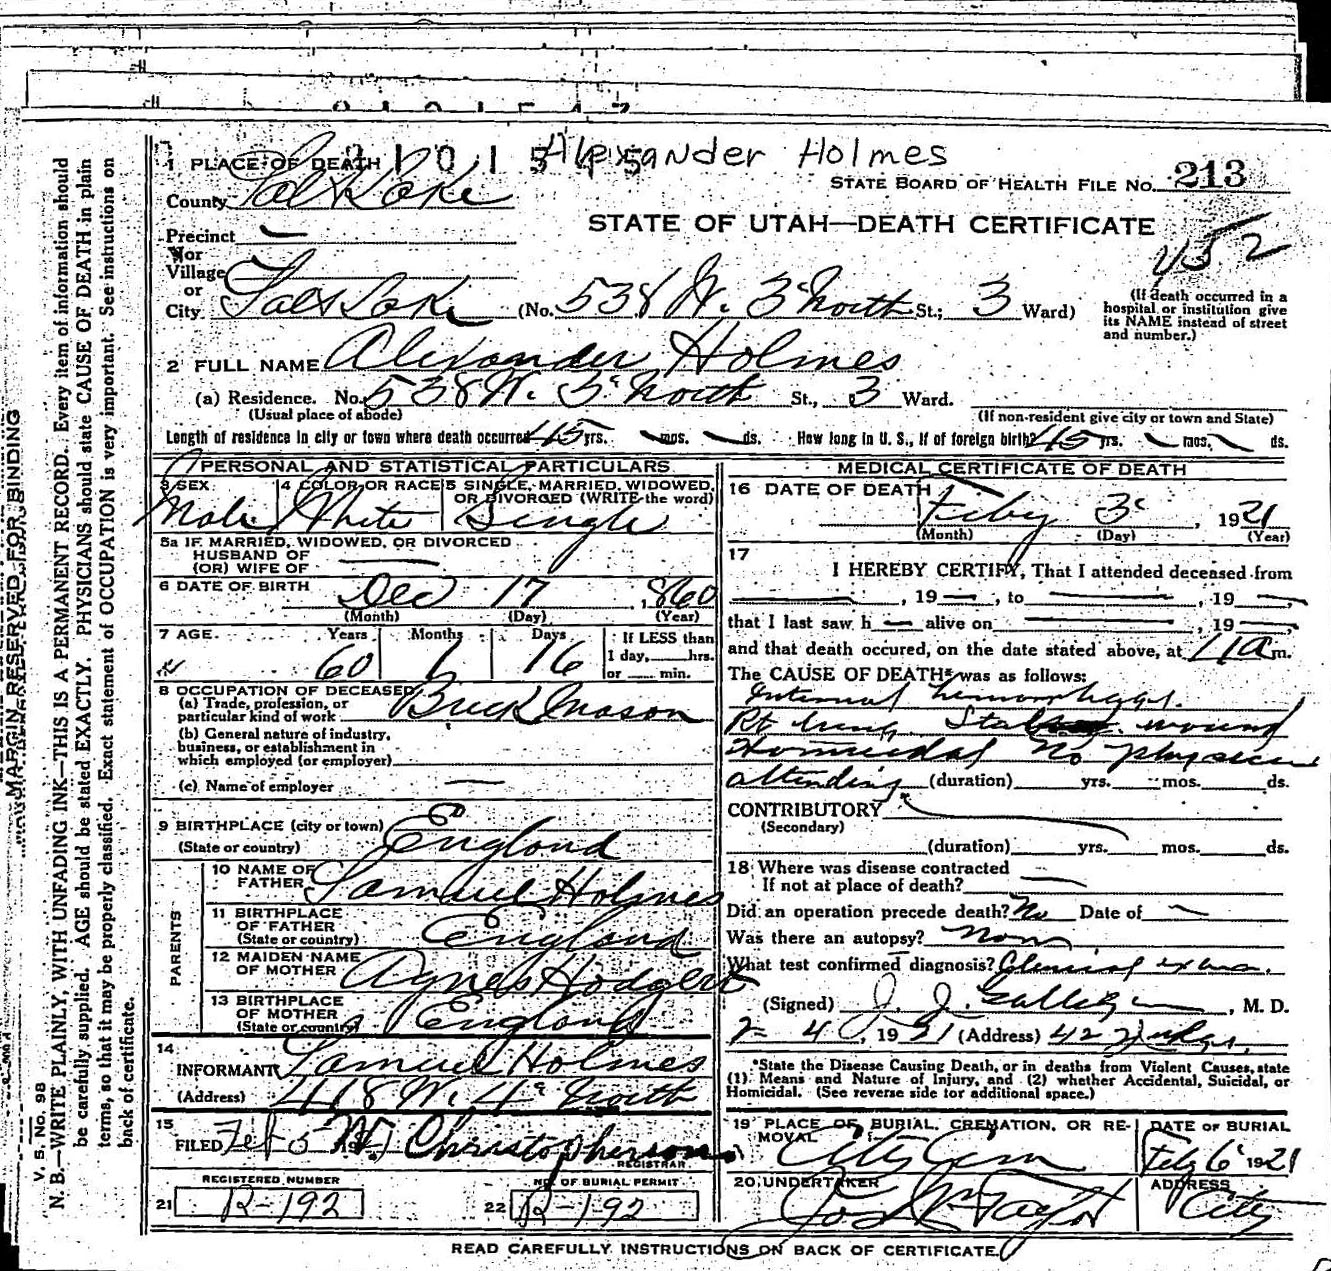 2101545 Alexander Holmes
1 PLACE OF DEATH
STATE BOARD OF HEALTH FILE NO. 213
County Salt Lake
STATE OF UTAH—DEATH CERTIFICATE
Precinct —
or
Village
or
City Salt Lake (No. 538 W. 3d North St.; 3 Ward)
(If death occurred in a
hospital or institution give
its NAME instead of street
and number.)
2 FULL NAME Alexander Holmes
(a) Residence. No. 538 W. 3d North St., 3 Ward.
(Usual place of abode) (If non-resident give city or town and State)
Length of residence in city or town where death occurred 45 yrs. — mos. — ds. How long in U. S., if of foreign birth? 45 yrs. — mos. — ds.
PERSONAL AND STATISTICAL PARTICULARS
3 SEX 4 COLOR OR RACE 5 SINGLE, MARRIED, WIDOWED,
OR DIVORCED (WRITE the word)
Male White Single
5a IF MARRIED, WIDOWED, OR DIVORCED
HUSBAND OF
(OR) WIFE OF —
6 DATE OF BIRTH Dec 17, 1860
(Month) (Day) (Year)
7 AGE Years Months Days If LESS than
1 day, hrs.
or min.
60 1 16
8 OCCUPATION OF DECEASED
(a) Trade, profession, or
particular kind of work Brick Mason
(b) General nature of industry,
business, or establishment in
which employed (or employer)
(c) Name of employer —
9 BIRTHPLACE (city or town)
(State or country) England
PARENTS
10 NAME OF
FATHER Samuel Holmes
11 BIRTHPLACE
OF FATHER
(State or country) England
12 MAIDEN NAME
OF MOTHER Agnes Hodgert
13 BIRTHPLACE
OF MOTHER
(State or country) England
14
INFORMANT Samuel Holmes
(Address) 418 W. 4th North
15
FILED Feb 5 W. Christopherson
REGISTRAR
REGISTERED NUMBER NO. OF BURIAL PERMIT
21 R-192 22 R-192
MEDICAL CERTIFICATE OF DEATH
16 DATE OF DEATH
Feby 3d, 1921
(Month) (Day) (Year)
17
I HEREBY CERTIFY, That I attended deceased from
—, 19 —, to —, 19 —,
that I last saw h — alive on —, 19 —,
and that death occured, on the date stated above, at 11 a m.
The CAUSE OF DEATH* was as follows:
Internal hemorrhage.
Rt lung Stab wound
Homicidal No physician
attending (duration) yrs. mos. ds.
CONTRIBUTORY
(Secondary)
(duration) yrs. mos. ds.
18 Where was disease contracted
If not at place of death? —
Did an operation precede death? No Date of —
Was there an autopsy? None
What test confirmed diagnosis? Clinical exam.
(Signed) J. J. Galligan, M. D.
2-4, 1921 (Address)
*State the Disease Causing Death, or in deaths from Violent Causes, state
(1) Means and Nature of Injury, and (2) whether Accidental, Suicidal, or
Homicidal. (See reverse side for additional space.)
19 PLACE OF BURIAL, CREMATION, OR RE-
MOVAL
City Cem
DATE OF BURIAL
Feby 6 1921
20 UNDERTAKER
Jos Wm Taylor
ADDRESS
City
READ CAREFULLY INSTRUCTIONS ON BACK OF CERTIFICATE.
MARGIN RESERVED FOR BINDING
V. S. No. 98
N. B.—WRITE PLAINLY, WITH UNFADING INK—THIS IS A PERMANENT RECORD. Every item of information should
be carefully supplied. AGE should be stated EXACTLY. PHYSICIANS should state CAUSE OF DEATH in plain
terms, so that it may be properly classified. Exact statement of OCCUPATION is very important. See instructions on
back of certificate.